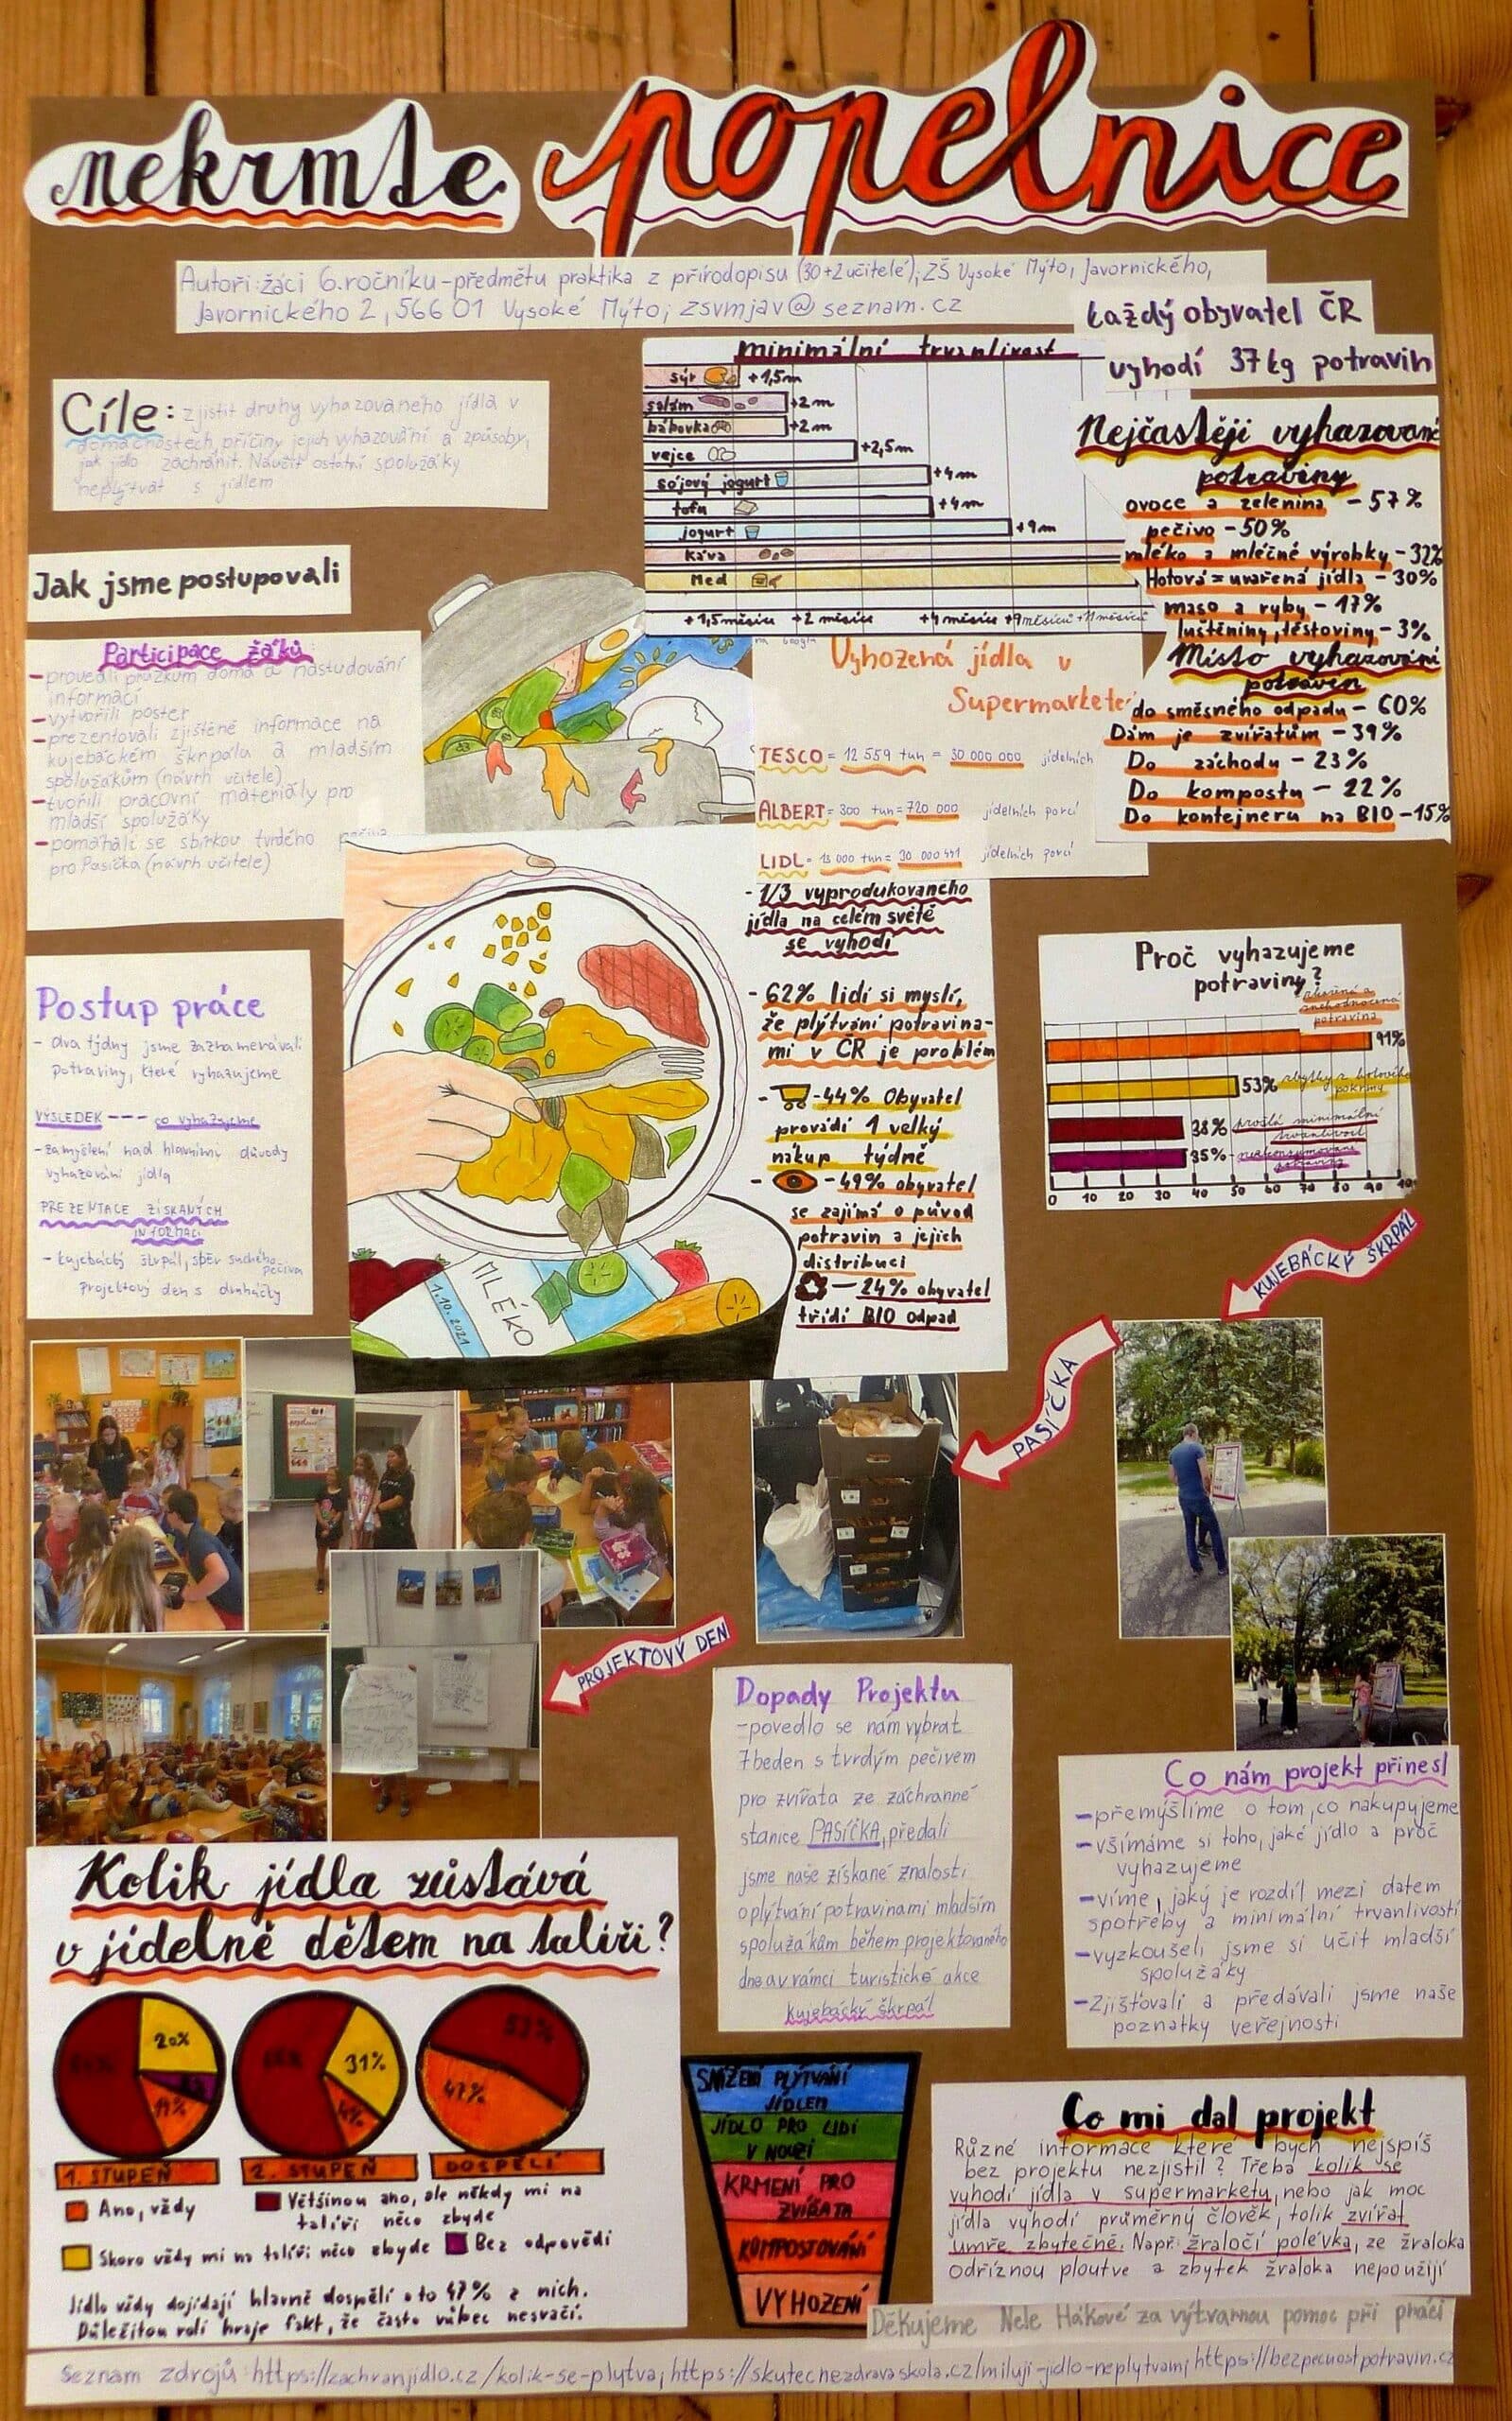 nekrmte popelnice
Autoři: žáci 6. ročníku - předmětu praktika z přírodopisu (30+2 učitelé); ZŠ Vysoké Mýto, Javornického,
Javornického 2, 566 01 Vysoké Mýto; zsvmjav@seznam.cz
každý obyvatel ČR
vyhodí 37 kg potravin
Cíle: zjistit druhy vyhazovaného jídla v
domácnostech, příčiny jejich vyhazování a způsoby,
jak jídlo zachránit. Naučit ostatní spolužáky
neplýtvat s jídlem
minimální trvanlivost
sýr +1,5m
salám +2m
bábovka +2m
vejce +2,5m
sójový jogurt +4m
tofu +4m
jogurt +9m
káva
Med
+1,5měsíce +2 měsíce +4 měsíce +9měsíců +11měsíců
Nejčastěji vyhazované
potraviny
ovoce a zelenina - 57%
pečivo - 50%
mléko a mléčné výrobky - 32%
Hotová = uvařená jídla - 30%
maso a ryby - 17%
luštěniny, těstoviny - 3%
Místo vyhazování
potravin
do směsného odpadu - 60%
Dám je zvířatům - 39%
Do záchodu - 23%
Do kompostu - 22%
Do kontejneru na BIO - 15%
Jak jsme postupovali
Participace žáků
- provedli průzkum doma a nastudování
informací
- vytvořili poster
- prezentovali zjištěné informace na
kujebáckém škrpálu a mladším
spolužákům (návrh učitele)
- tvořili pracovní materiály pro
mladší spolužáky
- pomáhali se sbírkou tvrdého pečiva
pro Pasíčka (návrh učitele)
Vyhozená jídla v
Supermarketech
TESCO = 12 559 tun = 30 000 000 jídelních
ALBERT = 300 tun = 720 000 jídelních porcí
LIDL = 13 000 tun = 30 000 441 jídelních porcí
- 1/3 vyprodukovaného
jídla na celém světě
se vyhodí
- 62% lidí si myslí,
že plýtvání potravina-
mi v ČR je problém
- 44% Obyvatel
provádí 1 velký
nákup týdně
- 49% obyvatel
se zajímá o původ
potravin a jejich
distribuci
- 24% obyvatel
třídí BIO odpad
MLÉKO
1.10.2021
Postup práce
- dva týdny jsme zaznamenávali
potraviny, které vyhazujeme
VÝSLEDEK --- co vyhazujeme
- zamyšlení nad hlavními důvody
vyhazování jídla
PREZENTACE ZÍSKANÝCH
INFORMACÍ
- kujebácký škrpál, sběr suchého
pečiva
Projektový den s druháčky
Proč vyhazujeme
potraviny?
zkažená a
znehodnocená
potravina
91%
53% zbytky z hotového
pokrmu
38% prošlá minimální
trvanlivost
35% - nezkonzumovaná
potravina
0 10 20 30 40 50 60 70 80 90 100
KUJEBÁCKÝ ŠKRPÁL
PASÍČKA
PROJEKTOVÝ DEN
Dopady Projektu
- povedlo se nám vybrat
7 beden s tvrdým pečivem
pro zvířata ze záchranné
stanice PASÍČKA, předali
jsme naše získané znalosti
o plýtvání potravinami mladším
spolužákům během projektovaného
dne a v rámci turistické akce
kujebácký škrpál
Co nám projekt přinesl
- přemýšlíme o tom, co nakupujeme
- všímáme si toho, jaké jídlo a proč
vyhazujeme
- víme, jaký je rozdíl mezi datem
spotřeby a minimální trvanlivostí
- vyzkoušeli jsme si učit mladší
spolužáky
- Zjišťovali a předávali jsme naše
poznatky veřejnosti
Kolik jídla zůstává
v jídelně dětem na talíři?
20%
14%
31%
4%
53%
47%
1. STUPEŇ 2. STUPEŇ DOSPĚLÍ
Ano, vždy
Většinou ano, ale někdy mi na
talíři něco zbyde
Skoro vždy mi na talíři něco zbyde
Bez odpovědi
Jídlo vždy dojídají hlavně dospělí a to 47% z nich.
Důležitou roli hraje fakt, že často vůbec nesvačí.
SNÍŽENÍ PLÝTVÁNÍ
JÍDLEM
JÍDLO PRO LIDI
V NOUZI
KRMENÍ PRO
ZVÍŘATA
KOMPOSTOVÁNÍ
VYHOZENÍ
Co mi dal projekt
Různé informace které bych nejspíš
bez projektu nezjistil? Třeba kolik se
vyhodí jídla v supermarketu, nebo jak moc
jídla vyhodí průměrný člověk, tolik zvířat
umře zbytečně. Např. žraločí polévka, ze žraloka
odříznou ploutve a zbytek žraloka nepoužijí
Děkujeme Nele Hákové za výtvarnou pomoc při práci
Seznam zdrojů: https://zachranjidlo.cz/kolik-se-plytva; https://skutecnezdravaskola.cz/miluji-jidlo-neplytvam; https://bezpecnostpotravin.cz